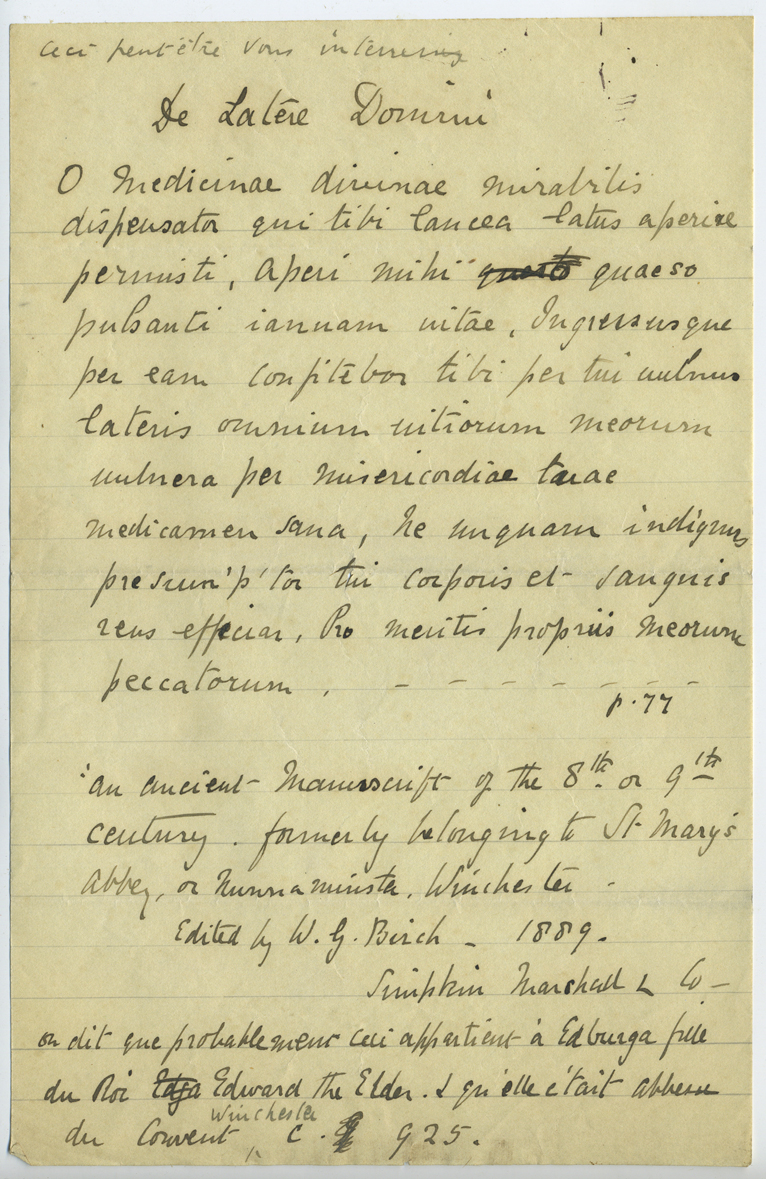 ceci peut être vous intéresser
De Latere Domini
O Medicinae divinae mirabilis
dispensator qui tibi lancea latus aperire
permisti, aperi mihi quaeso
pulsanti ianuam uitae, Ingressusque
per eam confitebor tibi per tui uulnus
lateris omnium uitiorum meorum
uulnera per misericordiae tuae
medicamen sana, Ne unquam indignus
presum'p'tor tui corporis et sanguis
reus efficiar, Pro meritis propriis meorum
peccatorum , - - - - - - -
p. 77
'an ancient Manuscript of the 8th. or 9th
century. formerly belonging to St Mary's
Abbey, or Nunnaminster, Winchester -
Edited by W. G. Birch - 1889.
Simpkin Marshall & Co -
on dit que probablement ceci appartient à Edburga fille
du Roi Edga Edward the Elder. & qu'elle était abbesse
Winchester
du Convent, c. 925.